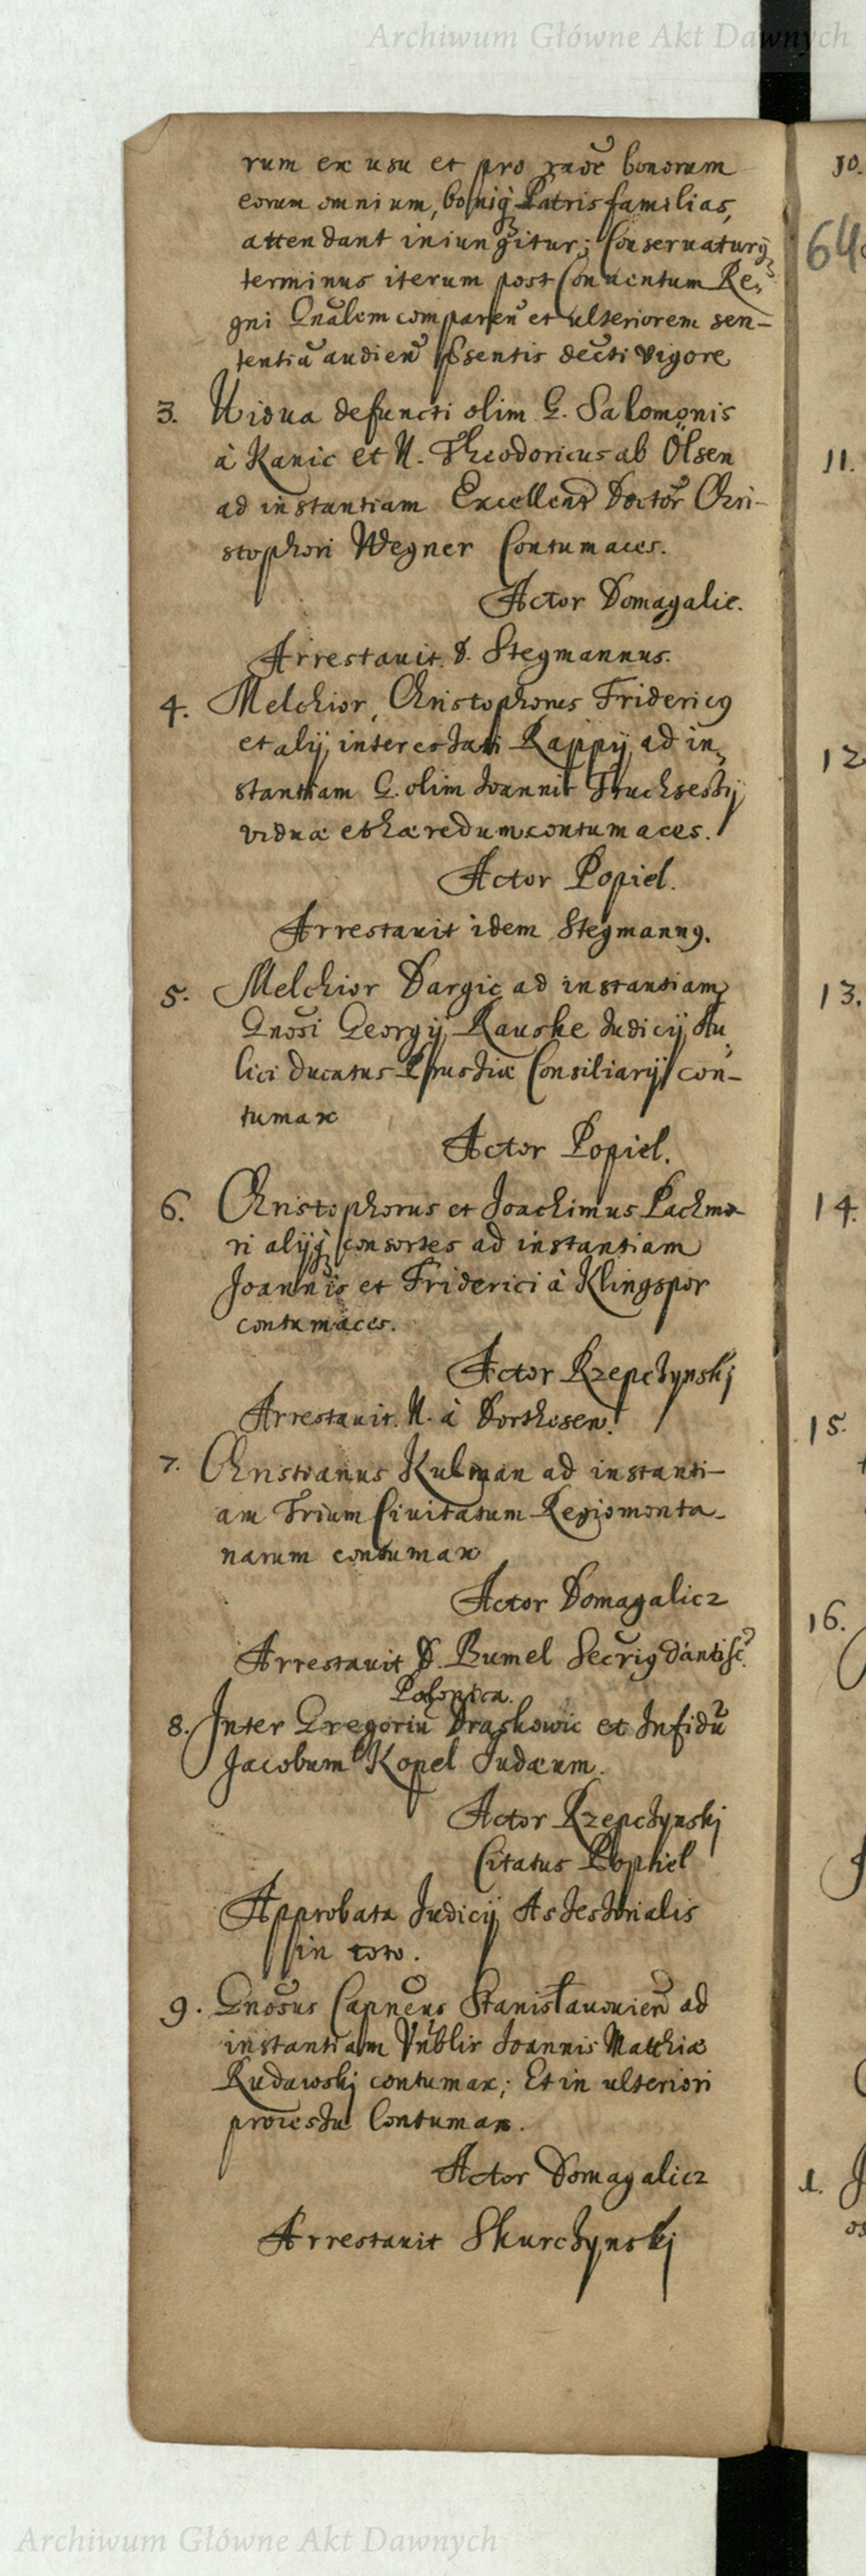 Archiwum Główne Akt Dawnych
rum ex usu et pro raõe bonorum
eorum omnium, boniq̃ Patris familias,
attendant iniungitur; Conseruaturq̃
terminus iterum post Conuentum Re,
gni Gnãlem comparen̄ et ulteriorem sen-
tentiã audien̄ p̃sentis decti vigore
3. Uidua defuncti olim G. Salomonis
à Kanic et N. Theodoricus ab Ölsen
ad instantiam Excellent̄ Doctor̄ Chri-
stophori Wegner Contumaces.
Actor Domagalic.
Arrestauit D. Stegmannus.
4. Melchior, Christophorus Fridericꝯ
et alij interessati Rappij ad in,
stantiam G. olim Joannis Truchsessij
viduæ et hæredum contumaces.
Actor Popiel.
Arrestauit idem Stegmannꝯ.
5. Melchior Dargic ad instantiam
Gnosi Georgij Rauske Judicij Au,
lici Ducatus Prussiæ Consiliarij con-
tumax
Actor Popiel.
6. Christophorus et Joachimus Pachmo-
ri alijq̃ consortes ad instantiam
Joannis et Friderici à Klingspor
contumaces.
Actor Rzepczynskj
Arrestauit. N. à Dorthosen.
7. Christianus Kulman ad instanti-
am Trium Ciuitatum Regiomonta-
narum contumax
Actor Domagalicz
Arrestauit D. Bumel Secrīg dantisc̄.
Polonica.
8. Inter Gregoriū Draskowic et Infidū
Jacobum Kopel Judæum.
Actor Rzepczynskj
Citatus Popiel
Approbata Judicij Assessorialis
in toto.
9. Gnosus Capneus Stanisłauouien̄ ad
instantiam Nublis Joannis Matthiæ
Rudawskj contumax; Et in ulteriori
processu Contumax.
Actor Domagalicz
Arrestauit Skurczynskj
10.
64
11.
12
13.
14.
15.
16.
1.
Archiwum Główne Akt Dawnych